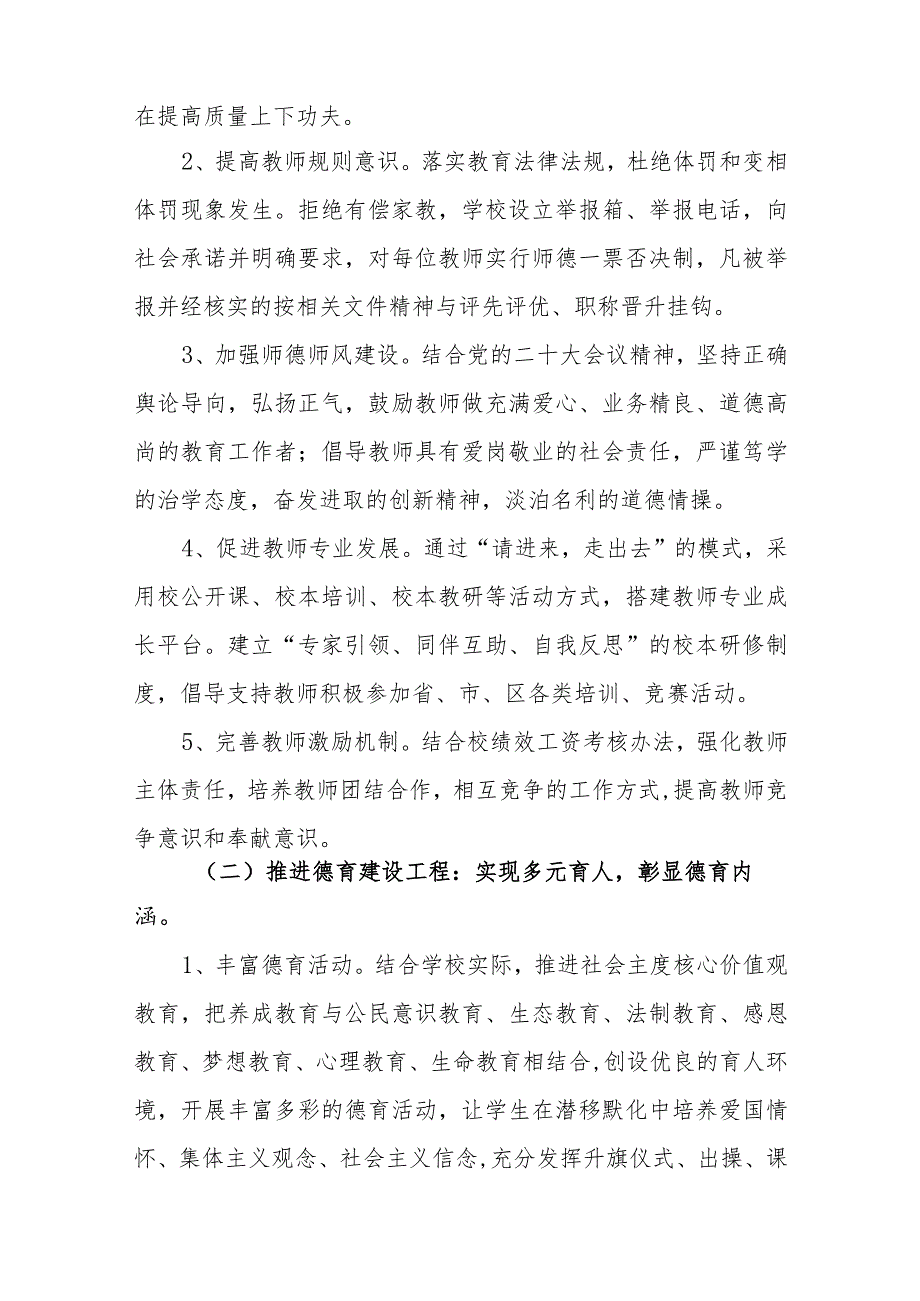 在提高质量上下功夫。
2、提高教师规则意识。落实教育法律法规，杜绝体罚和变相
体罚现象发生。拒绝有偿家教，学校设立举报箱、举报电话，向
社会承诺并明确要求，对每位教师实行师德一票否决制，凡被举
报并经核实的按相关文件精神与评先评优、职称晋升挂钩。
3、加强师德师风建设。结合党的二十大会议精神，坚持正确
舆论导向，弘扬正气，鼓励教师做充满爱心、业务精良、道德高
尚的教育工作者；倡导教师具有爱岗敬业的社会责任，严谨笃学
的治学态度，奋发进取的创新精神，淡泊名利的道德情操。
4、促进教师专业发展。通过“请进来，走出去”的模式，采
用校公开课、校本培训、校本教研等活动方式，搭建教师专业成
长平台。建立“专家引领、同伴互助、自我反思”的校本研修制
度，倡导支持教师积极参加省、市、区各类培训、竞赛活动。
5、完善教师激励机制。结合校绩效工资考核办法，强化教师
主体责任，培养教师团结合作，相互竞争的工作方式,提高教师竞
争意识和奉献意识。
（二）推进德育建设工程：实现多元育人，彰显德育内
涵。
1、丰富德育活动。结合学校实际，推进社会主度核心价值观
教育，把养成教育与公民意识教育、生态教育、法制教育、感恩
教育、梦想教育、心理教育、生命教育相结合,创设优良的育人环
境，开展丰富多彩的德育活动，让学生在潜移默化中培养爱国情
怀、集体主义观念、社会主义信念,充分发挥升旗仪式、出操、课